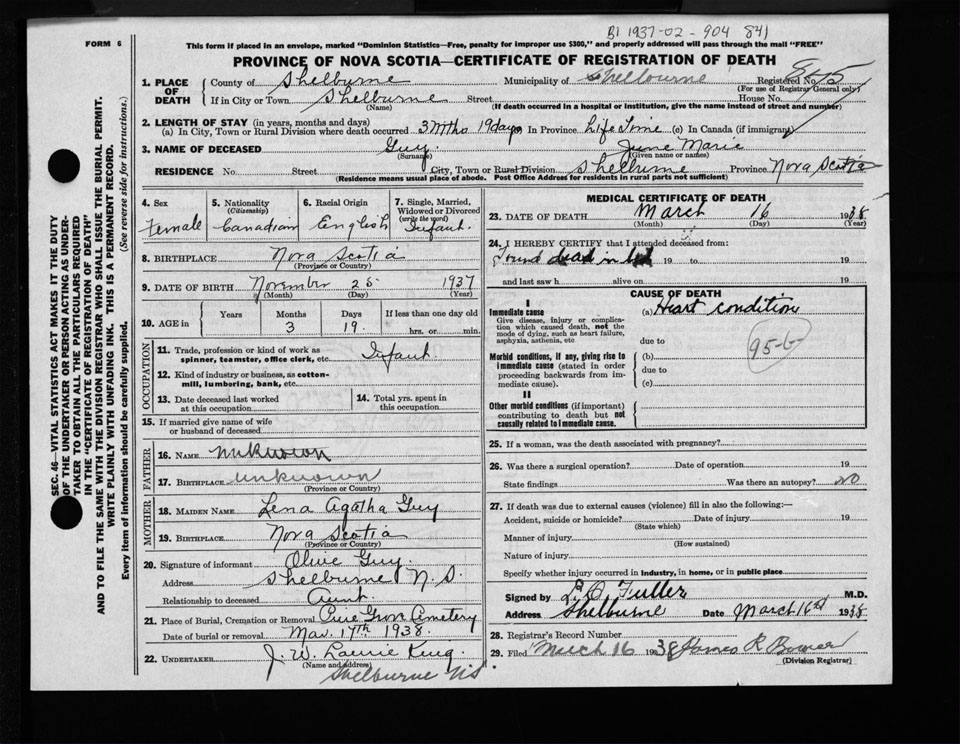 B1 1937-02-904 841
FORM 6
This form if placed in an envelope, marked "Dominion Statistics—Free, penalty for improper use $300," and properly addressed will pass through the mail "FREE"
PROVINCE OF NOVA SCOTIA—CERTIFICATE OF REGISTRATION OF DEATH
1. PLACE OF DEATH
County of Shelburne Municipality of Shelburne Registered No.
(For use of Registrar General only)
If in City or Town Shelburne Street House No.
(Name) (If death occurred in a hospital or institution, give the name instead of street and number)
2. LENGTH OF STAY (in years, months and days)
(a) In City, Town or Rural Division where death occurred 3 Mths 19 days In Province Life Time (c) In Canada (if immigrant)
3. NAME OF DECEASED Guy June Marie
(Surname) (Given name or names)
RESIDENCE No. Street City, Town or Rural Division Shelburne Province Nova Scotia
(Residence means usual place of abode. Post Office Address for residents in rural parts not sufficient)
4. Sex
Female
5. Nationality
(Citizenship)
Canadian
6. Racial Origin
English
7. Single, Married, Widowed or Divorced
(write the word)
Infant.
8. BIRTHPLACE Nova Scotia
(Province or Country)
9. DATE OF BIRTH November 25 1937
(Month) (Day) (Year)
10. AGE in Years Months Days If less than one day old
3 19 hrs. or min.
OCCUPATION
11. Trade, profession or kind of work as spinner, teamster, office clerk, etc. Infant.
12. Kind of industry or business, as cotton-mill, lumbering, bank, etc.
13. Date deceased last worked at this occupation
14. Total yrs. spent in this occupation
15. If married give name of wife or husband of deceased
FATHER
16. NAME unknown
17. BIRTHPLACE unknown
(Province or Country)
MOTHER
18. MAIDEN NAME Lena Agatha Guy
19. BIRTHPLACE Nova Scotia
(Province or Country)
20. Signature of informant Olive Guy.
Address Shelburne N.S.
Relationship to deceased Aunt
21. Place of Burial, Cremation or Removal Pine Grove Cemetery
Date of burial or removal Mar. 17th 1938.
22. UNDERTAKER J. W. Laurie King.
(Name and address)
Shelburne NS
MEDICAL CERTIFICATE OF DEATH
23. DATE OF DEATH March 16 1938
(Month) (Day) (Year)
24. I HEREBY CERTIFY that I attended deceased from:
Found dead in bed 19 to 19
and last saw h alive on 19
CAUSE OF DEATH
I
Immediate cause
Give disease, injury or complication which caused death, not the mode of dying, such as heart failure, asphyxia, asthenia, etc
(a) Heart condition
due to
95-b
Morbid conditions, if any, giving rise to immediate cause (stated in order proceeding backwards from immediate cause).
(b)
due to
(c)
II
Other morbid conditions (if important) contributing to death but not causally related to immediate cause.
25. If a woman, was the death associated with pregnancy?
26. Was there a surgical operation? Date of operation 19
State findings Was there an autopsy? NO
27. If death was due to external causes (violence) fill in also the following:—
Accident, suicide or homicide? Date of injury 19
(State which)
Manner of injury
(How sustained)
Nature of injury
Specify whether injury occurred in industry, in home, or in public place
Signed by L. O. Fuller M.D.
Address Shelburne Date March 16th 1938
28. Registrar's Record Number
29. Filed March 16 1938 James R Bower
(Division Registrar)
SEC. 46—VITAL STATISTICS ACT MAKES IT THE DUTY
OF THE UNDERTAKER OR PERSON ACTING AS UNDER-
TAKER TO OBTAIN ALL THE PARTICULARS REQUIRED
IN THE "CERTIFICATE OF REGISTRATION OF DEATH"
AND TO FILE THE SAME WITH THE DIVISION REGISTRAR WHO SHALL ISSUE THE BURIAL PERMIT.
WRITE PLAINLY WITH UNFADING INK. THIS IS A PERMANENT RECORD.
Every item of information should be carefully supplied. (See reverse side for instructions.)